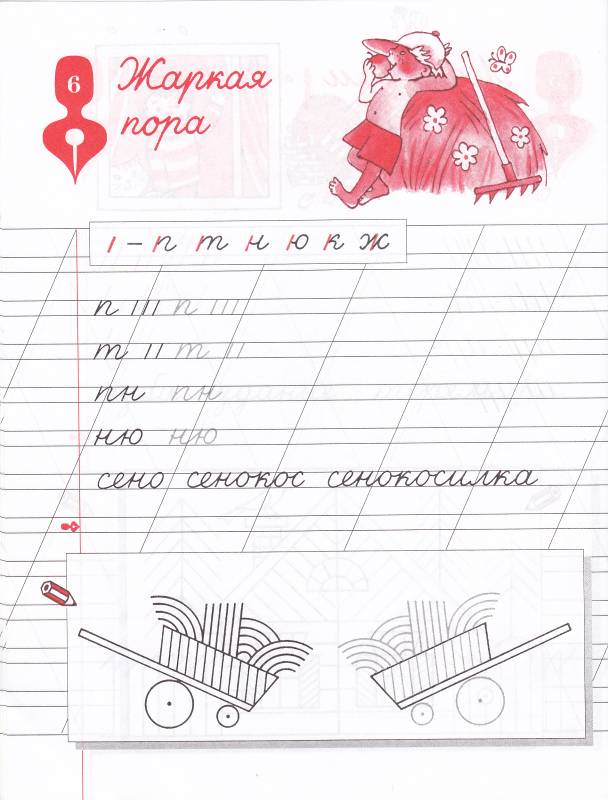 6
Жаркая
пора
ı – п т н ю к ж
п ııı п ııı
т ıı т ıı
пн пн
ню ню
сено сенокос сенокосилка